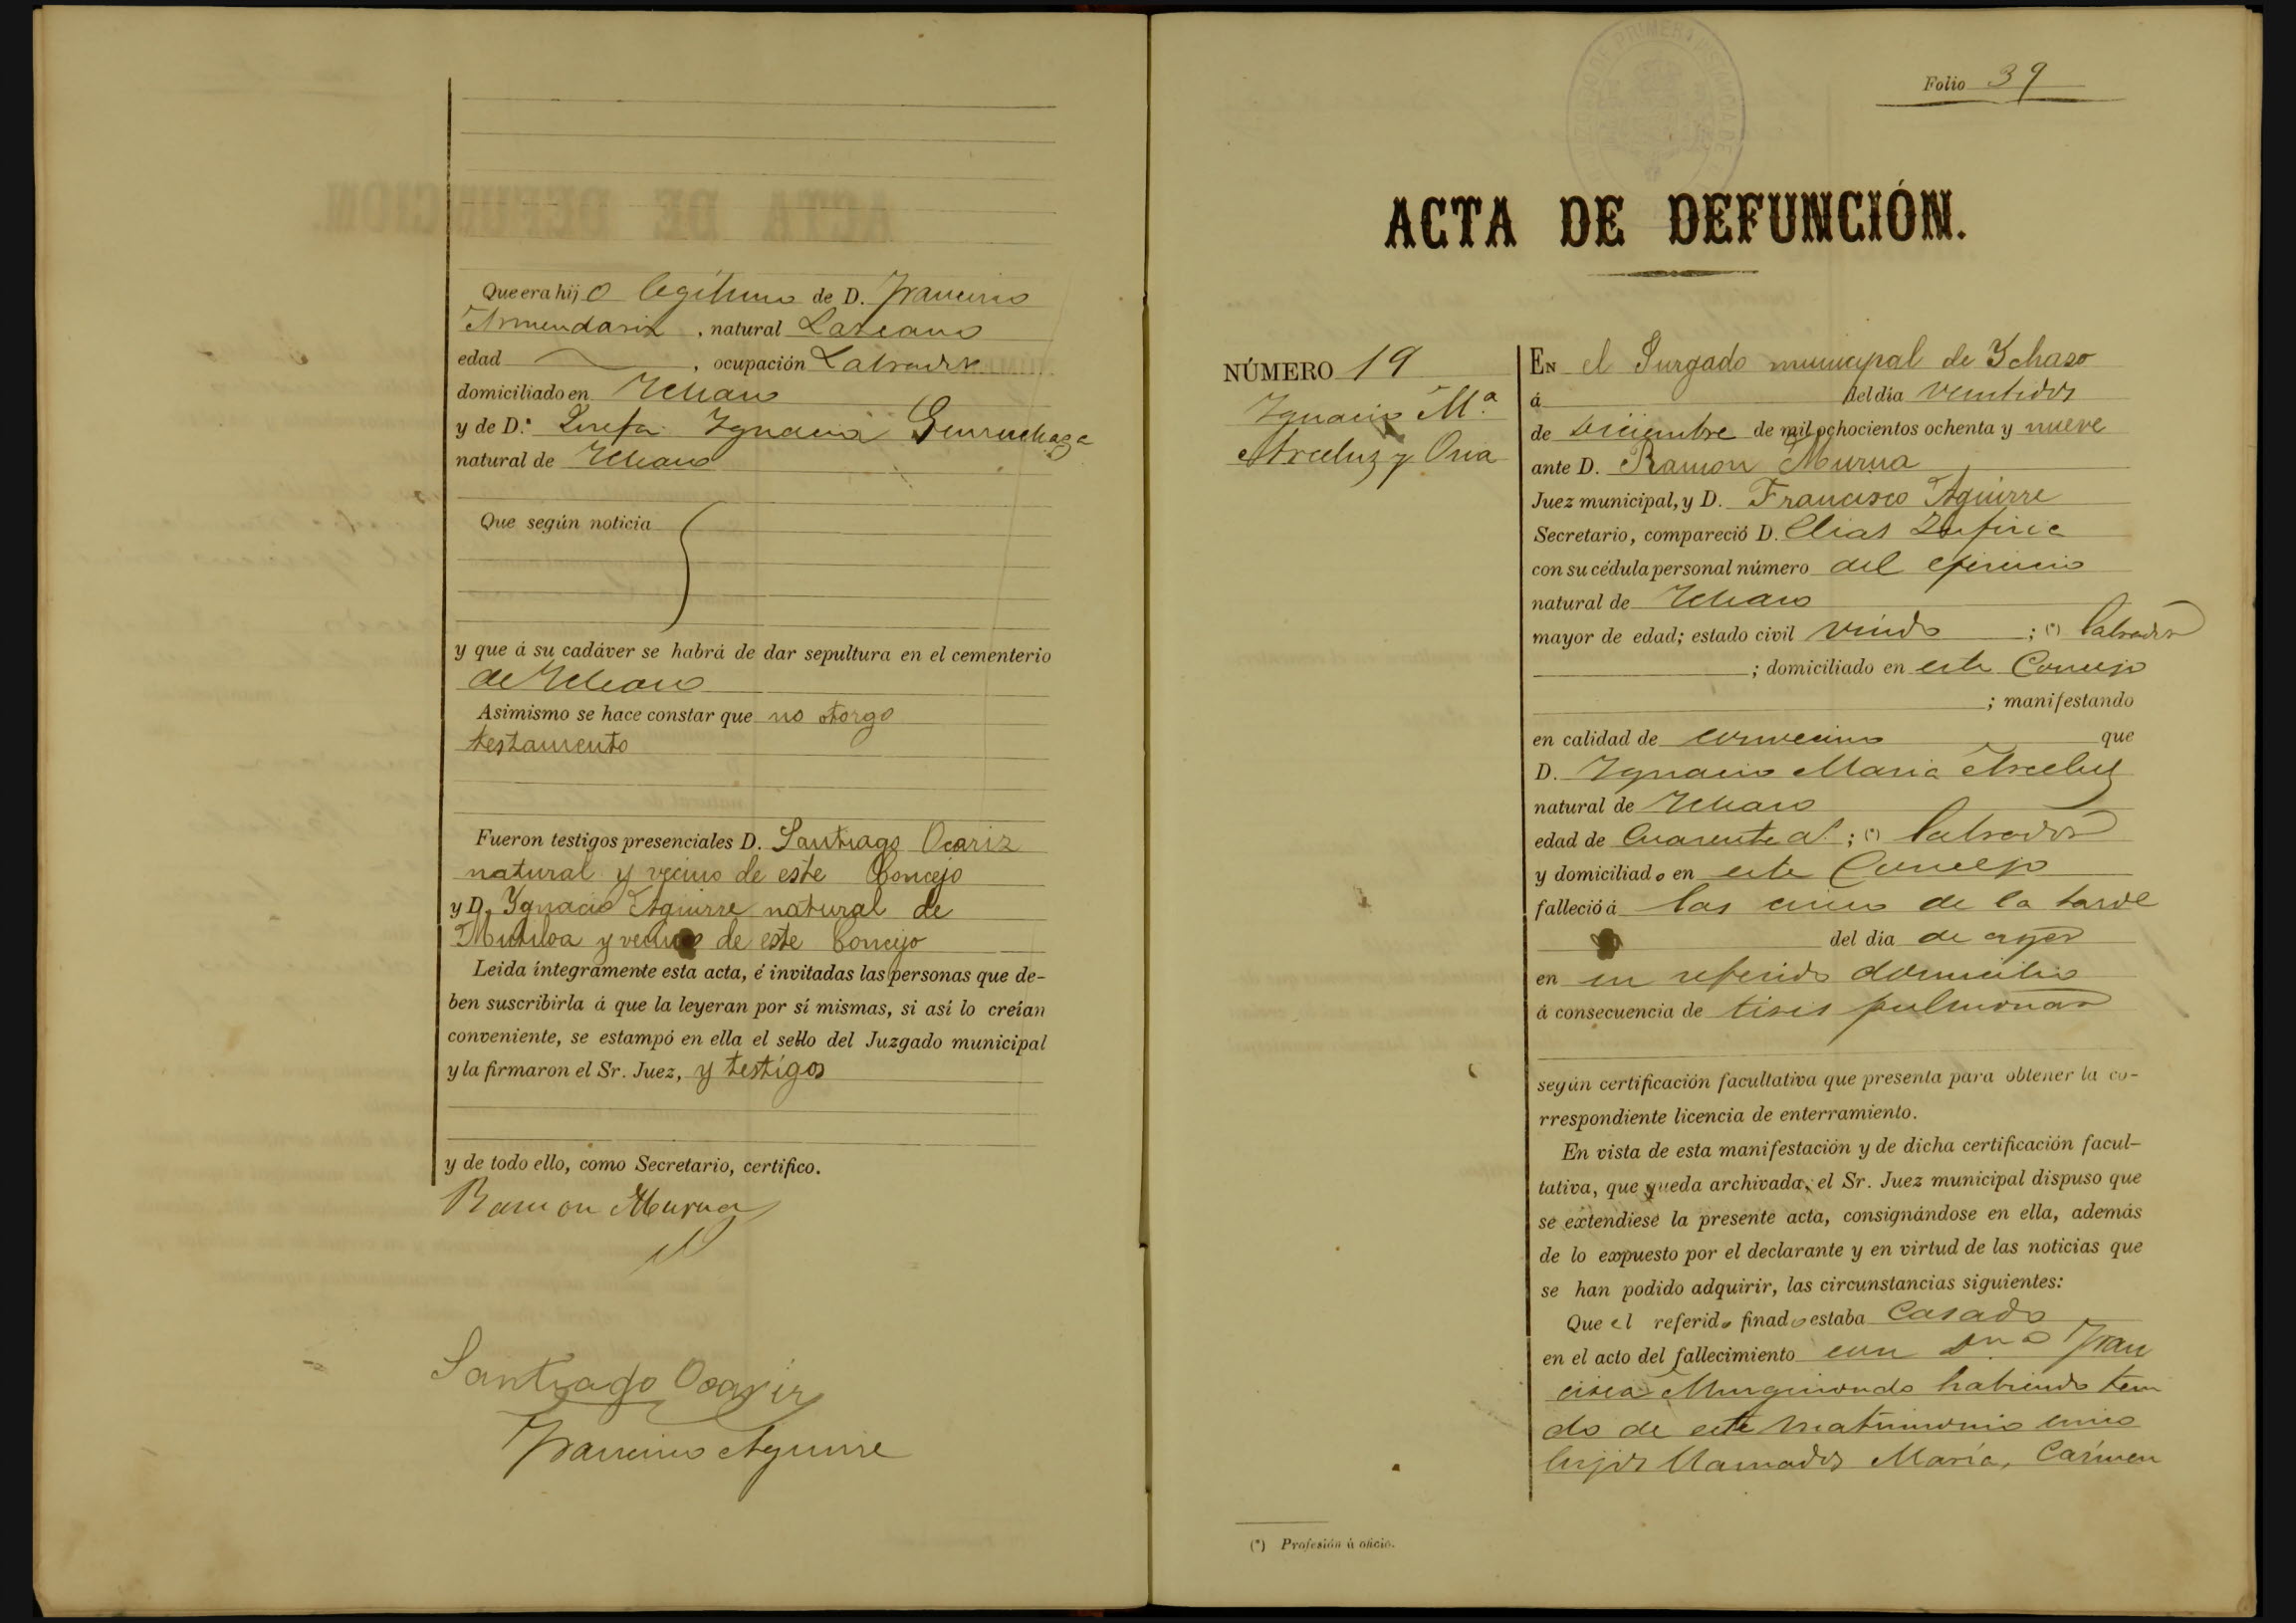 Que era hijo legitimo de D. Francisco
Armendariz, natural Lazcano
edad , ocupación Labrador
domiciliado en Ichaso
y de D.ª Josefa Ignacia Gurruchaga
natural de Ichaso
Que según noticia
y que á su cadáver se habrá de dar sepultura en el cementerio
de Ichaso
Asimismo se hace constar que no otorgo
testamento
Fueron testigos presenciales D. Santiago Ocariz
natural y vecino de este Concejo
y D. Ygnacio Aguirre natural de
Mutiloa y vecino de este Concejo
Leida íntegramente esta acta, é invitadas las personas que de-
ben suscribirla á que la leyeran por sí mismas, si así lo creían
conveniente, se estampó en ella el sello del Juzgado municipal
y la firmaron el Sr. Juez, y testigos
y de todo ello, como Secretario, certifico.
Ramon Murua
Santiago Ocariz
Francisco Aguirre
Folio 39
ACTA DE DEFUNCIÓN.
NÚMERO 19
Ignacio M.ª
Arceluz y Oria
En el Jurgado municipal de Ychaso
á del dia veintidos
de Diciembre de mil ochocientos ochenta y nueve
ante D. Ramon Murua
Juez municipal, y D. Francisco Aguirre
Secretario, compareció D. Elias
con su cédula personal número del ejercicio
natural de Ichaso
mayor de edad; estado civil viudo ; (*) labrador
; domiciliado en este Concejo
; manifestando
en calidad de convecino que
D. Ignacio Maria Arceluz
natural de Ichaso
edad de Cuarenta a.ˢ ; (*) labrador
y domiciliado en este Concejo
falleció á las cinco de la tarde
del dia de ayer
en su referido domicilio
á consecuencia de tisis pulmonar
según certificación facultativa que presenta para obtener la co-
rrespondiente licencia de enterramiento.
En vista de esta manifestación y de dicha certificación facul-
tativa, que queda archivada, el Sr. Juez municipal dispuso que
se extendiese la presente acta, consignándose en ella, además
de lo expuesto por el declarante y en virtud de las noticias que
se han podido adquirir, las circunstancias siguientes:
Que el referido finado estaba Casado
en el acto del fallecimiento con Dn.ª Fran
cisca Murguiondo habiendo teni
do de este matrimonio cinco
hijos llamados María, Cármen
(*) Profesión ú oficio.